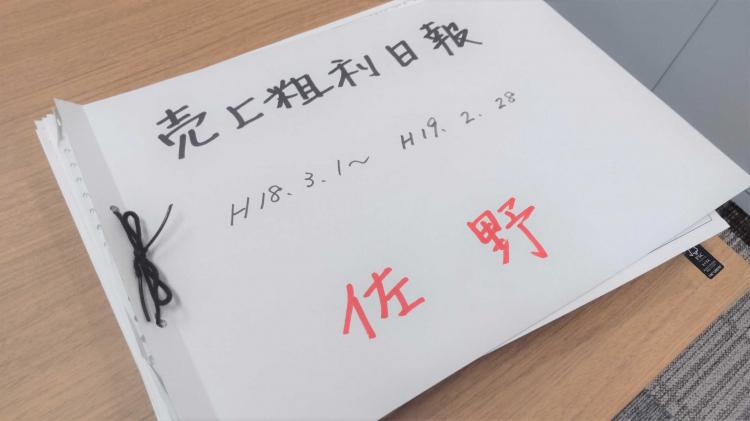 売上粗利日報
H18.3.1～ H19.2.28
佐野